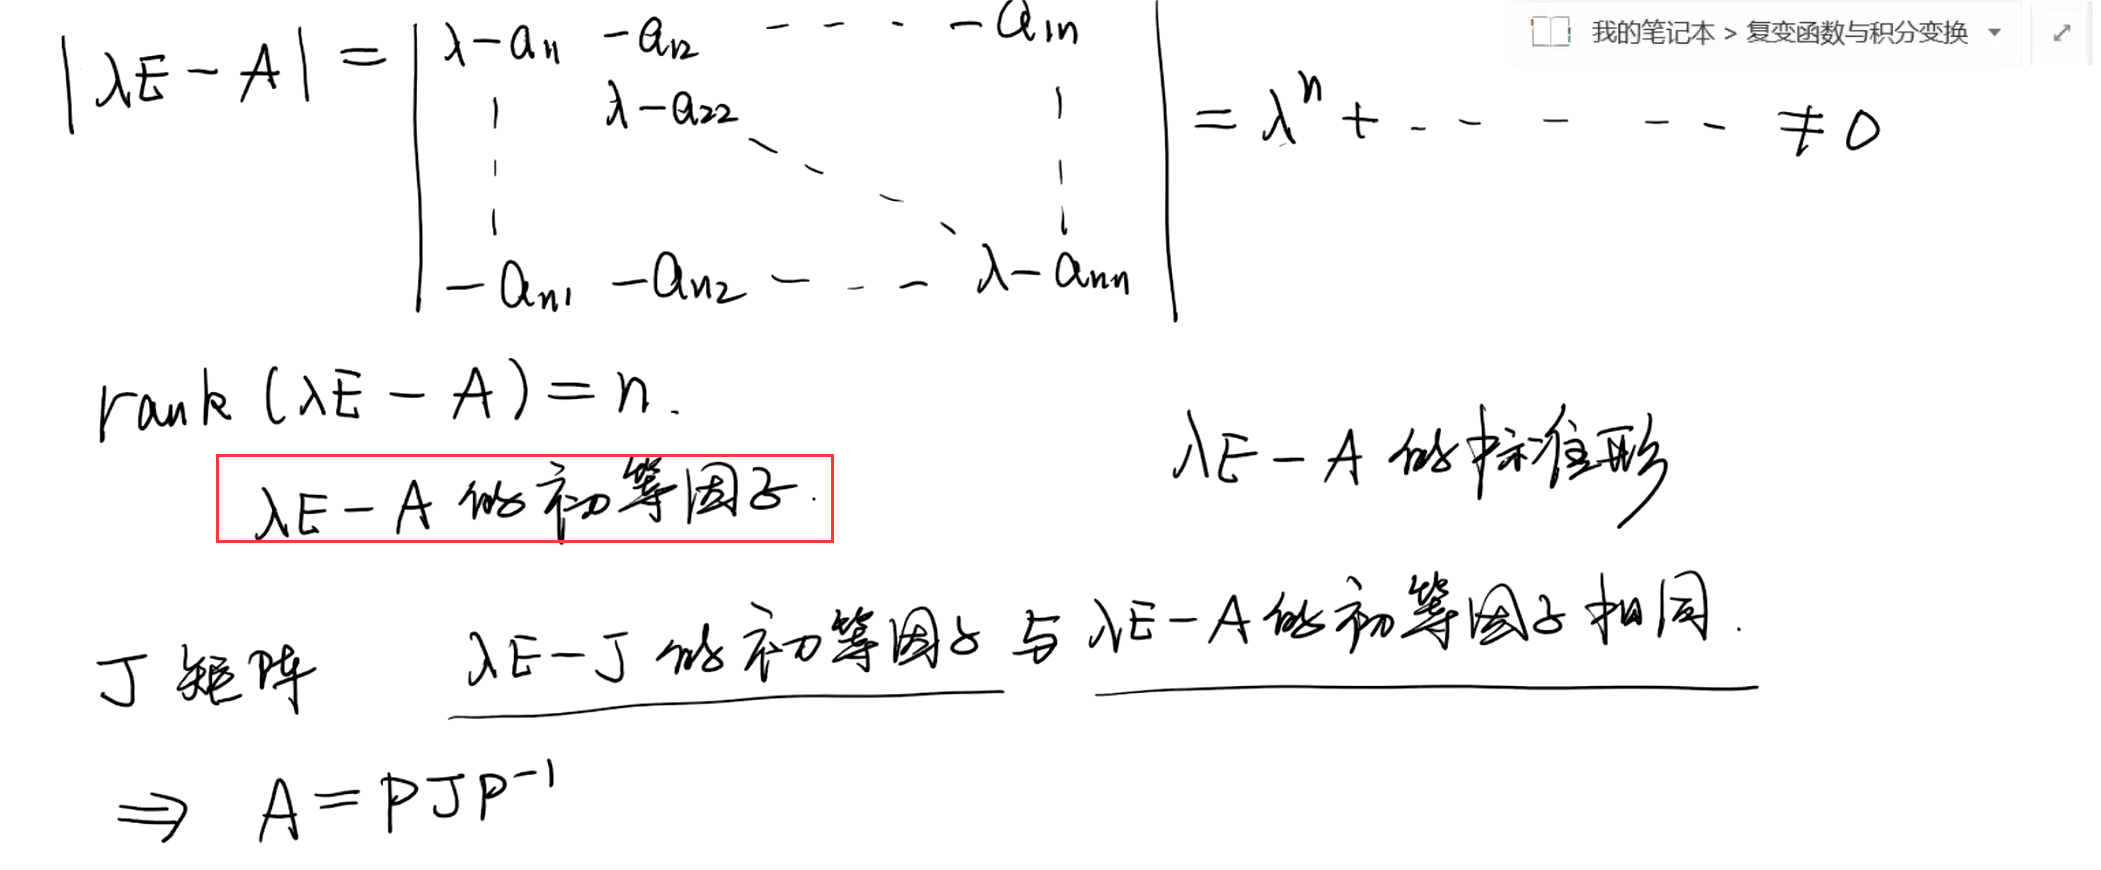 我的笔记本 > 复变函数与积分变换
|λE-A| = | λ-a₁₁ -a₁₂ - - - - -a₁ₙ
λ-a₂₂
-aₙ₁ -aₙ₂ - - - λ-aₙₙ | = λⁿ + - - - - - ≠ 0
rank (λE-A) = n.
λE-A 的标准形
λE-A 的初等因子.
J 矩阵 λE-J 的初等因子与 λE-A 的初等因子相同.
⇒ A = PJP⁻¹